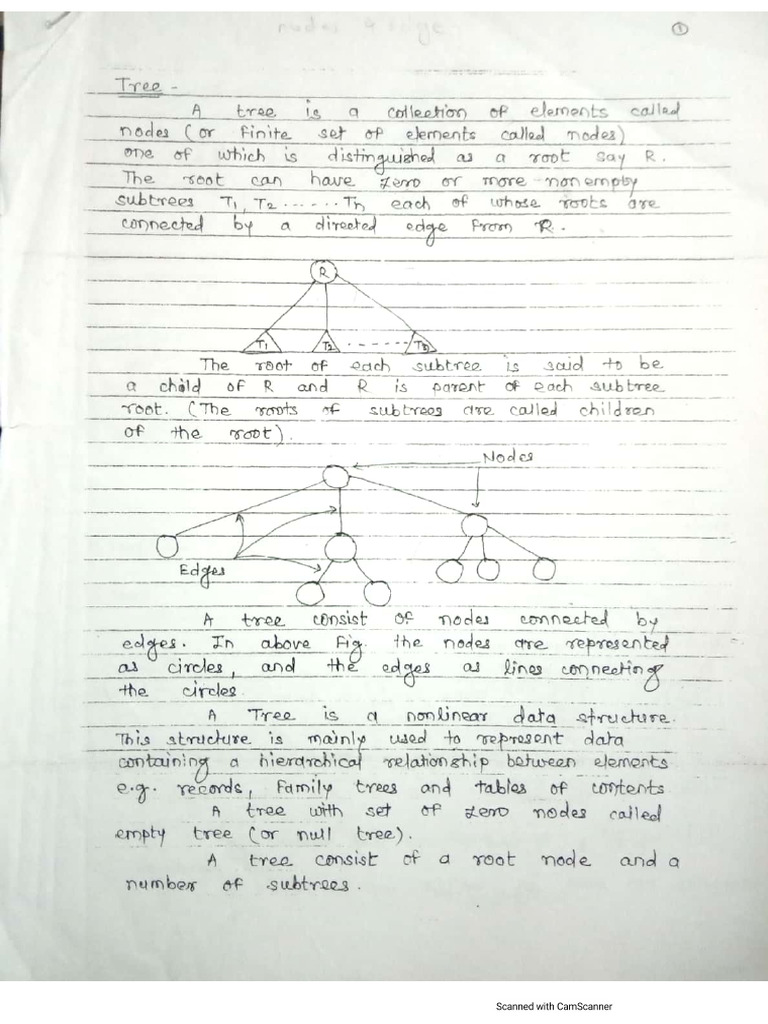 ①
Tree -
A tree is a collection of elements called
nodes (or finite set of elements called nodes)
one of which is distinguished as a root say R.
The root can have zero or more nonempty
subtrees T1, T2 ...... Tn each of whose roots are
connected by a directed edge from R.
R
T1 T2 ------ Tn
The root of each subtree is said to be
a child of R and R is parent of each subtree
root. (The roots of subtrees are called children
of the root).
Nodes
Edges
A tree consist of nodes connected by
edges. In above fig. the nodes are represented
as circles, and the edges as lines connecting
the circles.
A Tree is a nonlinear data structure.
This structure is mainly used to represent data
containing a hierarchical relationship between elements
e.g. records, family trees and tables of contents
A tree with set of zero nodes called
empty tree (or null tree).
A tree consist of a root node and a
number of subtrees.
Scanned with CamScanner